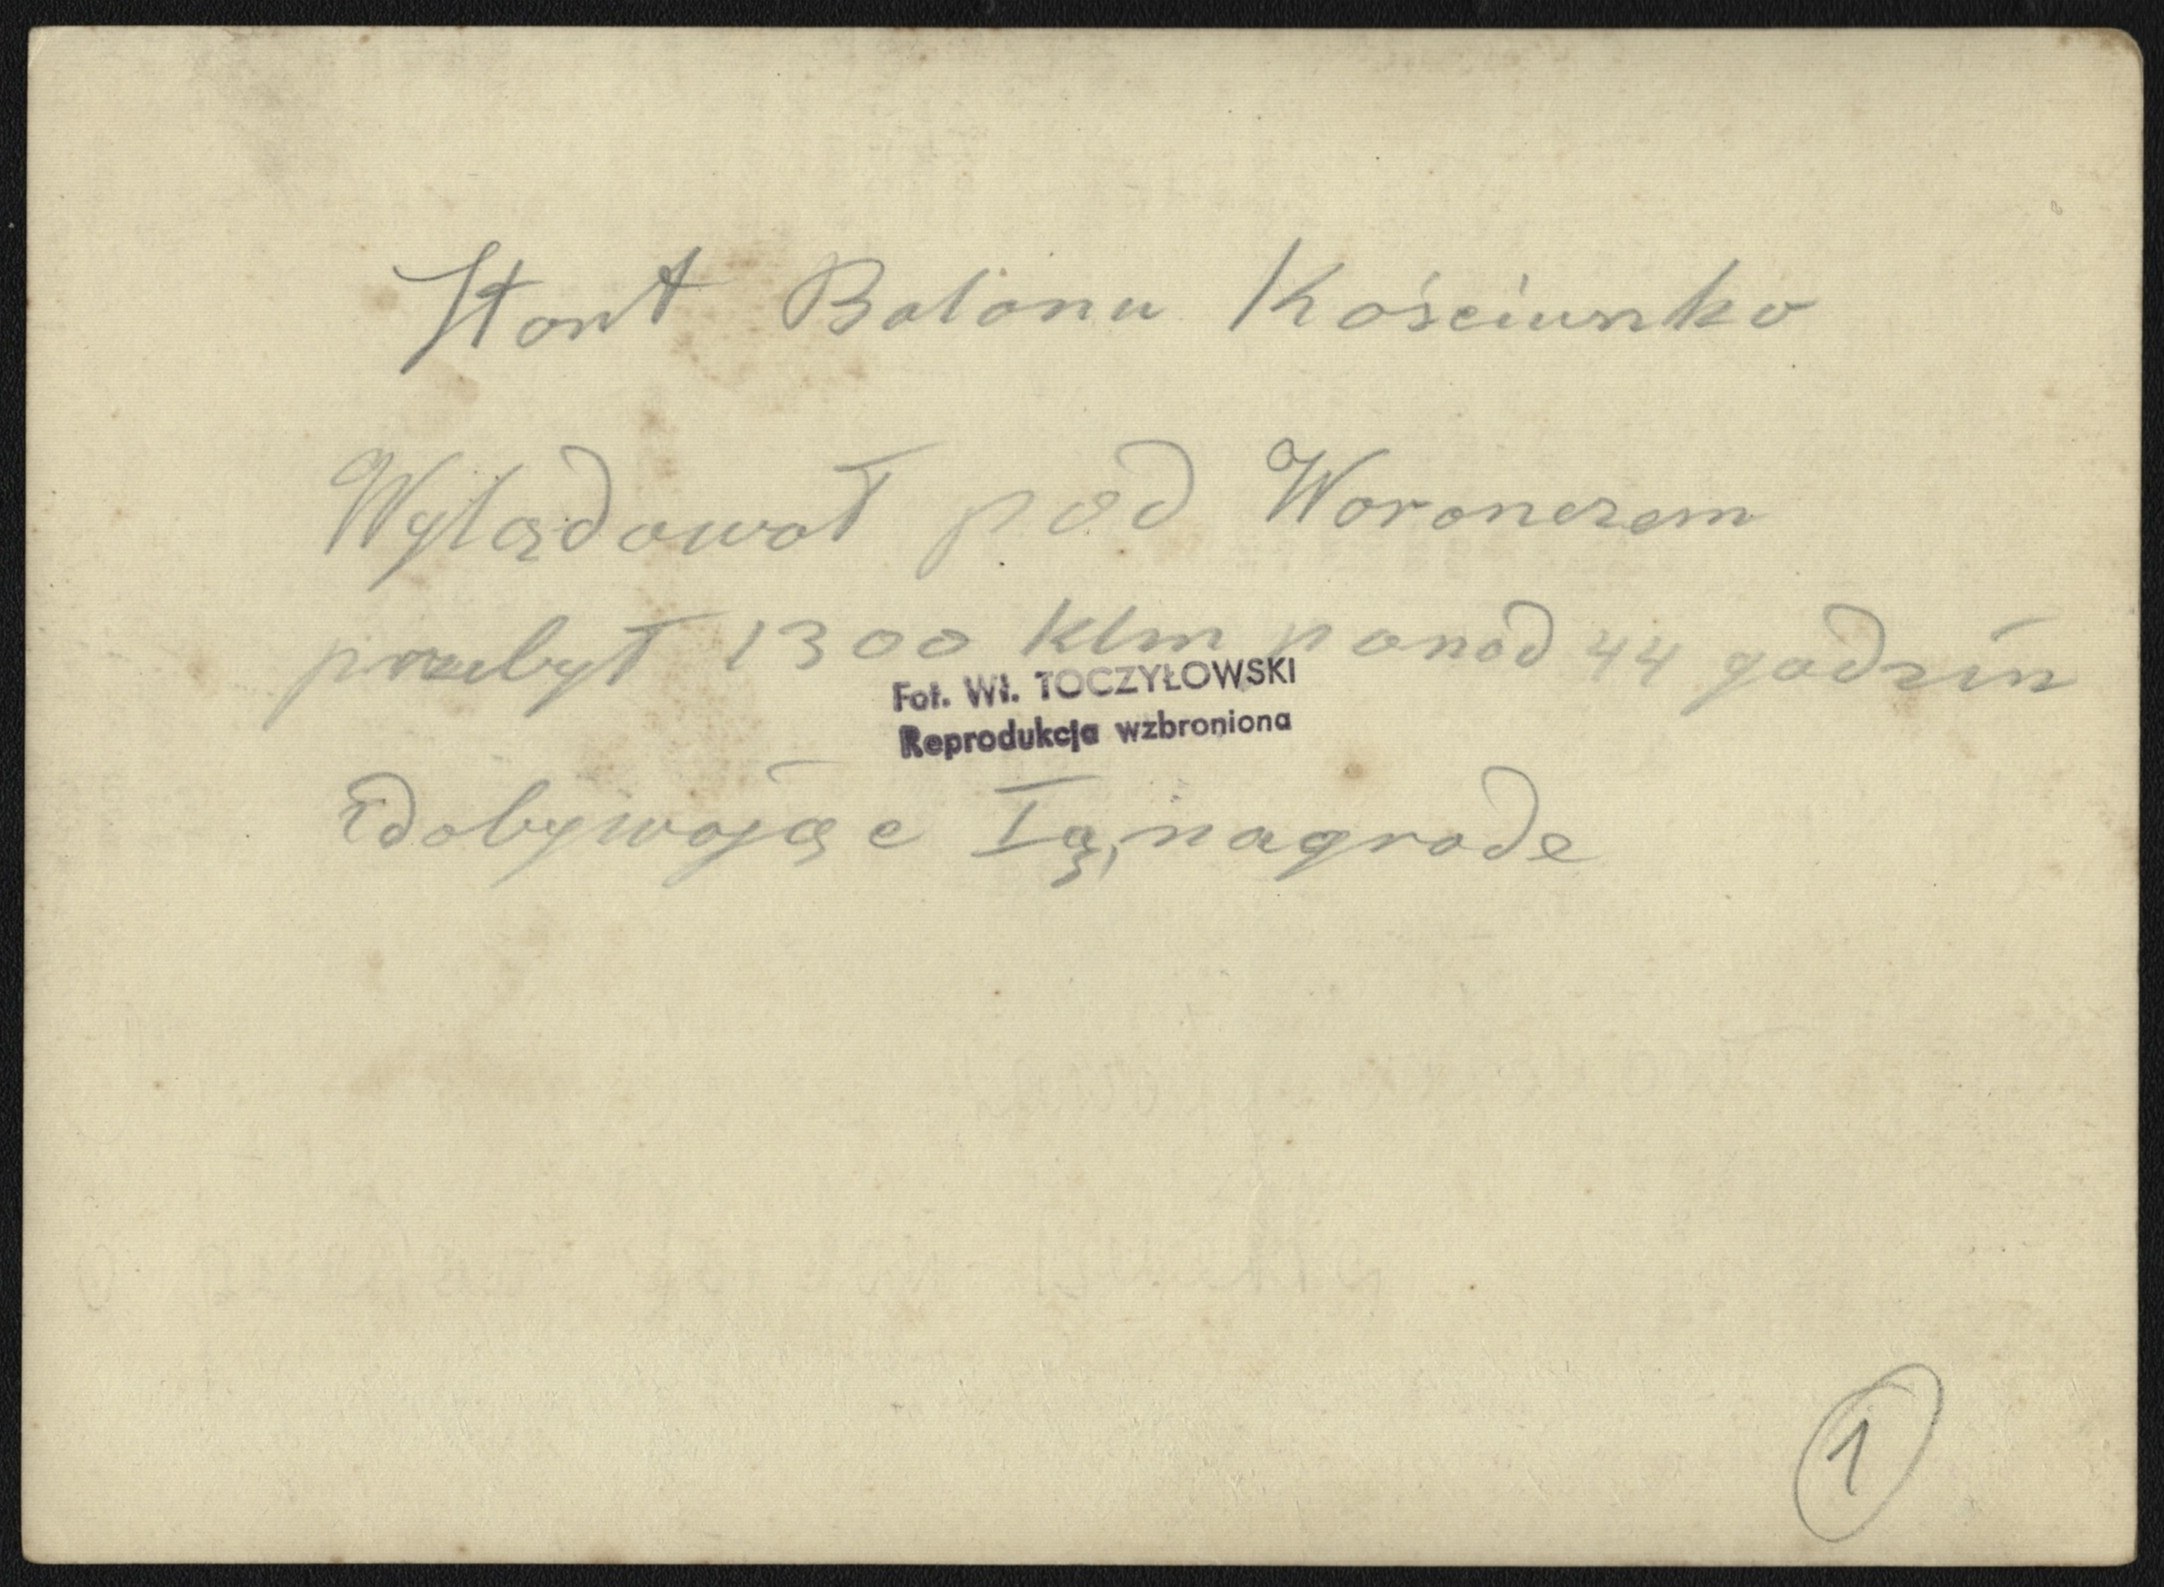 Start Balonu Kościuszko
Wylądował pod Woroneżem
przebył 1300 klm ponad 44 godzin
Fot. Wł. TOCZYŁOWSKI
Reprodukcja wzbroniona
Zdobywając Ią, nagrode
1